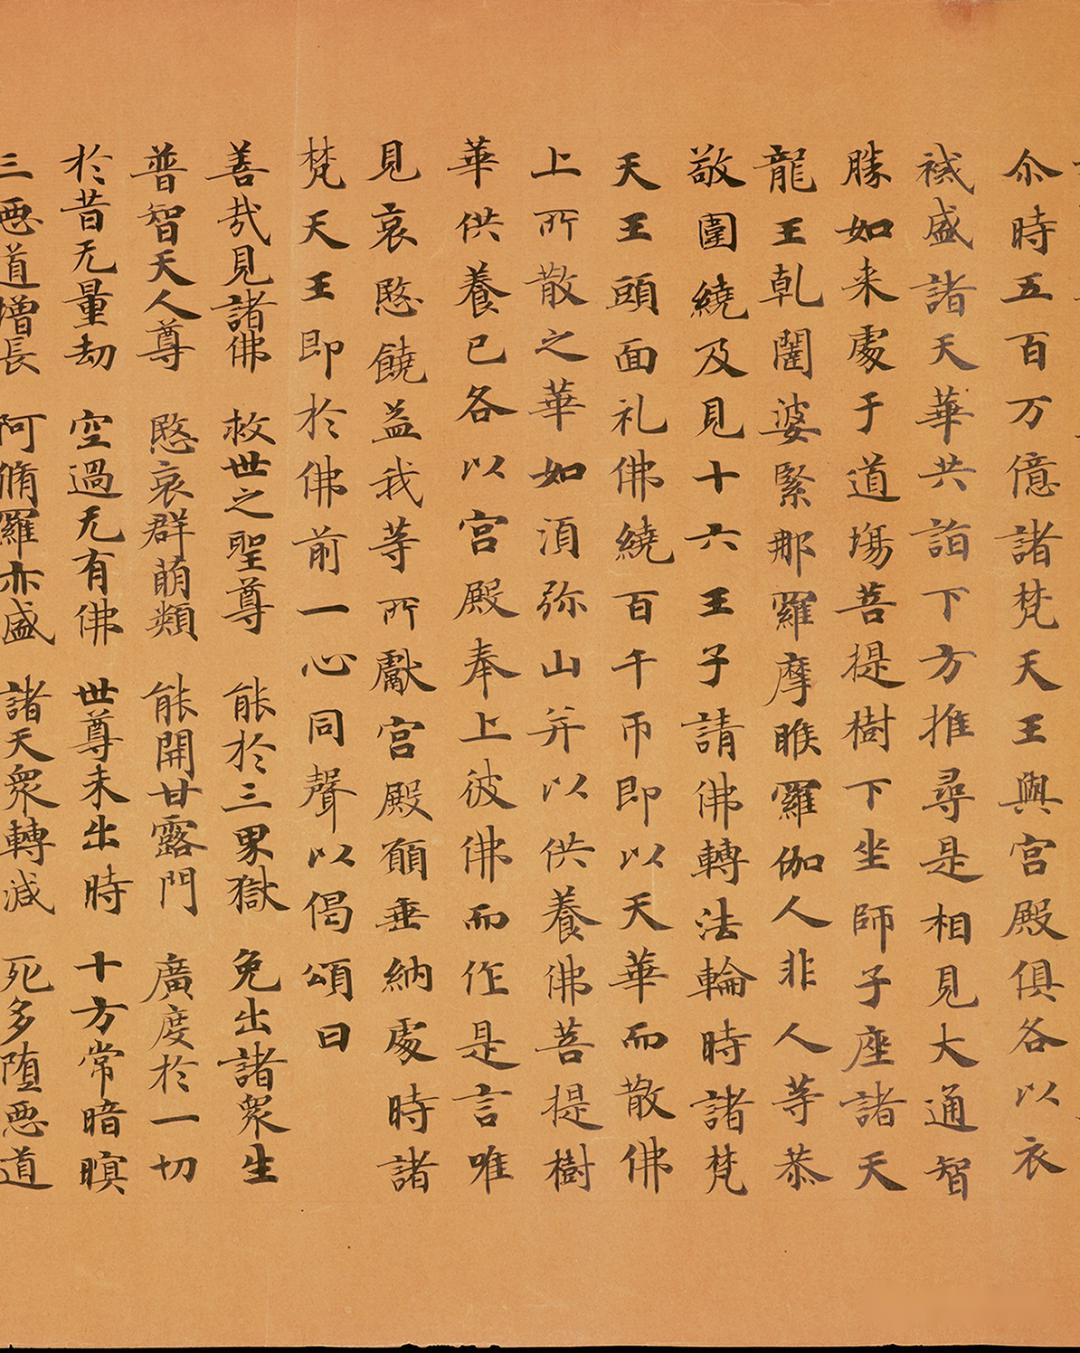 尒時五百万億諸梵天王與宮殿俱各以衣
裓盛諸天華共詣下方推尋是相見大通智
勝如来處于道場菩提樹下坐師子座諸天
龍王乹闥婆緊那羅摩睺羅伽人非人等恭
敬圍繞及見十六王子請佛轉法輪時諸梵
天王頭面礼佛繞百千帀即以天華而散佛
上所散之華如湏弥山并以供養佛菩提樹
華供養已各以宮殿奉上彼佛而作是言唯
見哀愍饒益我等所獻宮殿願垂納處時諸
梵天王即於佛前一心同聲以偈頌曰
善哉見諸佛 救世之聖尊 能於三界獄 免出諸衆生
普智天人尊 愍哀群萌類 能開甘露門 廣度於一切
於昔无量劫 空過无有佛 世尊未出時 十方常暗暝
三惡道增長 阿脩羅亦盛 諸天衆轉減 死多墮惡道